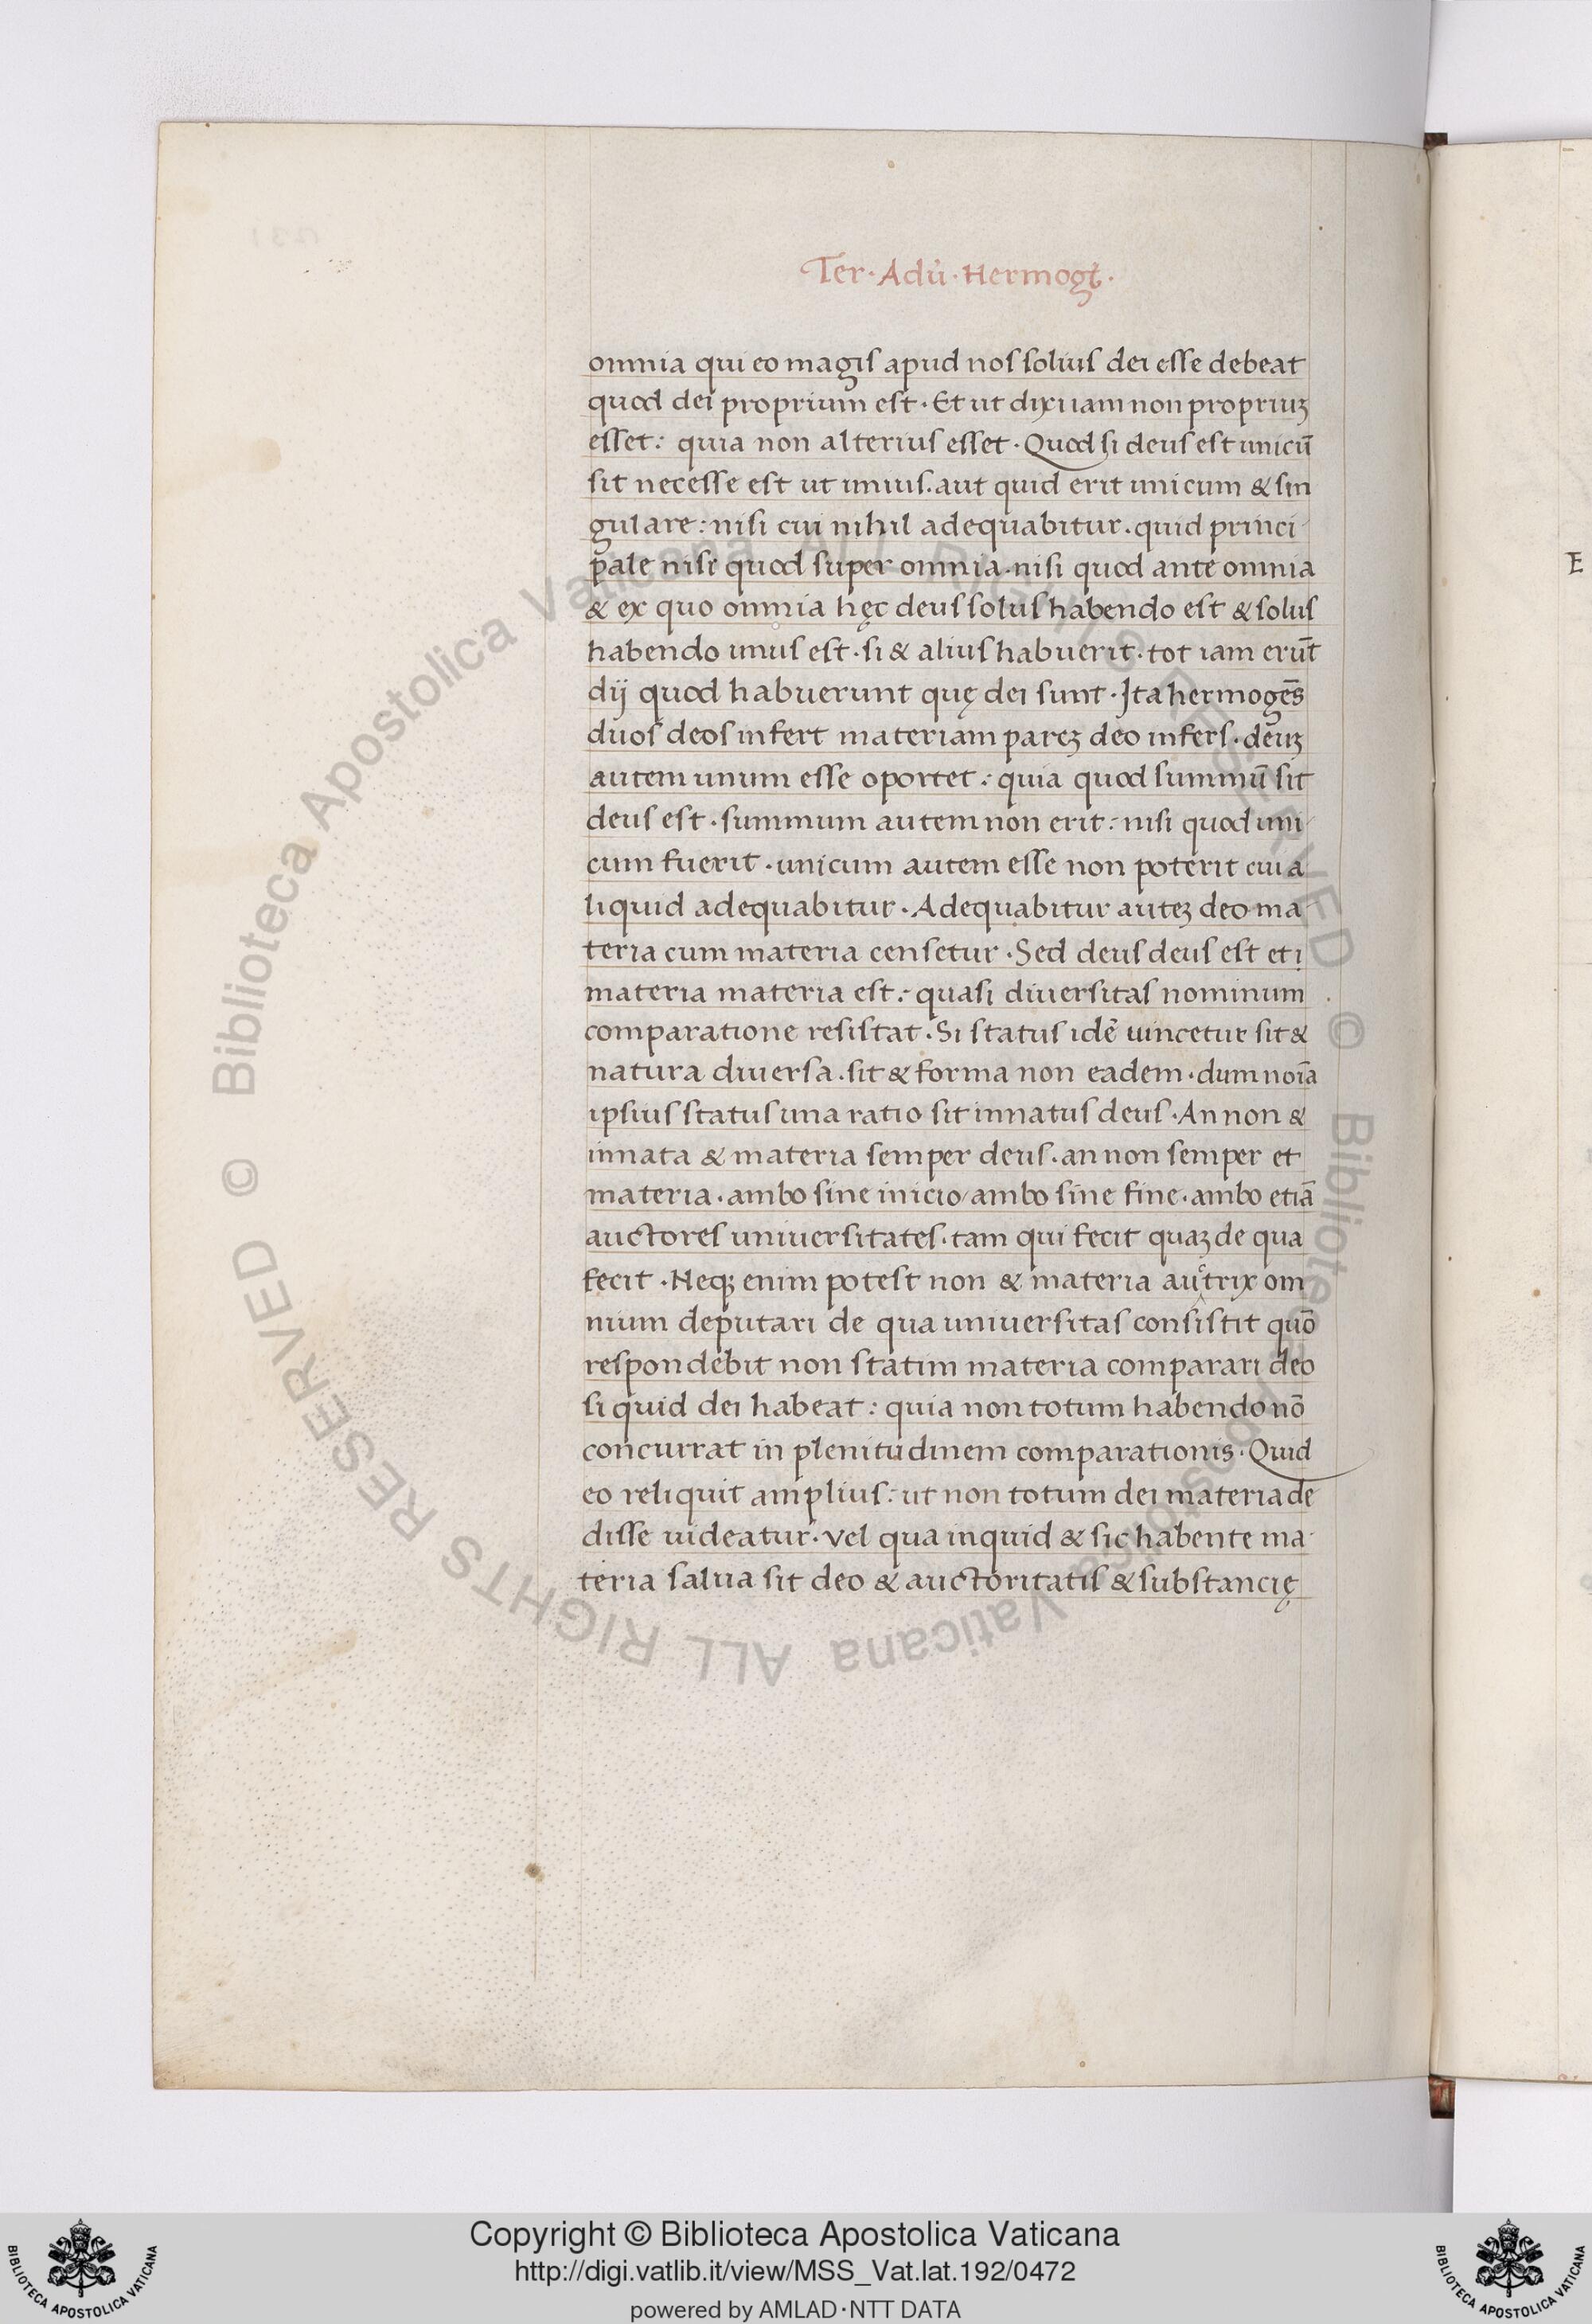 Ter · Adu̇ · Hermogē̃ ·
omnia qui eo magis apud nos solius dei esse debeat
quod dei proprium est · Et ut dixi iam non propriuꝫ
esset : quia non alterius esset · Quod si deus est unicū
sit necesse est ut unius . aut quid erit unicum & sin
gulare : nisi cui nihil adequabitur . quid princi-
pale nise quod super omnia . nisi quod ante omnia
& ex quo omnia hęc deus solus habendo est & solus
habendo unus est · si & alius habuerit · tot iam erūt
dij quod habuerunt quę dei sunt · Ita hermogēs
duos deos infert materiam pareꝫ deo infers · deuꝫ
autem unum esse oportet : quia quod summū sit
deus est · summum autem non erit : nisi quod uni-
cum fuerit · unicum autem esse non poterit cui a
liquid adequabitur · Adequabitur auteꝫ deo ma-
teria cum materia censetur · Sed deus deus est et i
materia materia est : quasi diuersitas nominum
comparatione resistat · Si status idē uincetur sit &
natura diuersa . sit & forma non eadem · dum noīa
ipsius status una ratio sit innatus deus · An non &
innata & materia semper deus . an non semper et
materia . ambo sine inicio / ambo sine fine . ambo etiā
auctores uniuersitates . tam qui fecit quaꝫ de qua
fecit · Neqꝫ enim potest non & materia auctrix om
nium deputari de qua uniuersitas consistit quō
respondebit non statim materia comparari deo
si quid dei habeat : quia non totum habendo nō
concurrat in plenitudinem comparationis · Quid
eo reliquit amplius : ut non totum dei materia de
disse uideatur · vel qua inquid & sic habente ma-
teria salua sit deo & auctoritatis & substancię
E
Copyright © Biblioteca Apostolica Vaticana
http://digi.vatlib.it/view/MSS_Vat.lat.192/0472
powered by AMLAD·NTT DATA
BIBLIOTECA APOSTOLICA VATICANA
BIBLIOTECA APOSTOLICA VATICANA
© Biblioteca Apostolica Vaticana ALL RIGHTS RESERVED © Biblioteca Apostolica Vaticana ALL RIGHTS RESERVED